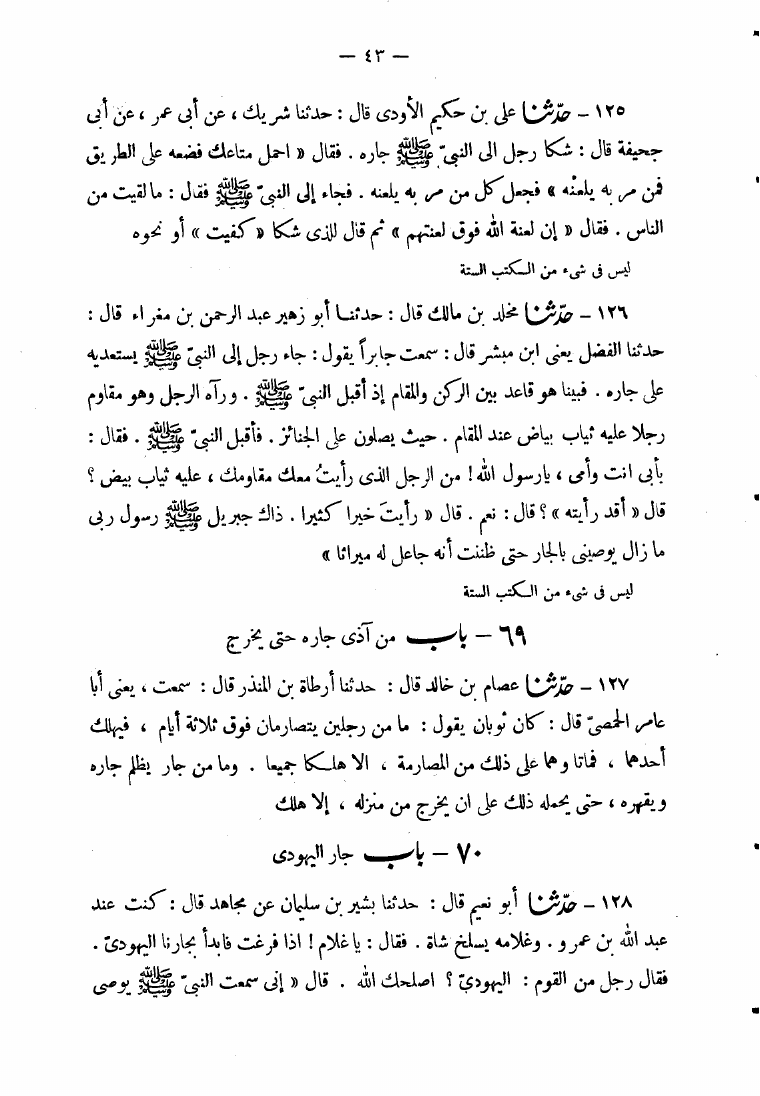 — ٤٣ —
١٢٥ – حدّثنا على بن حكيم الأودى قال : حدثنا شريك ، عن أبى عمر ، عن أبى
جحيفة قال : شكا رجل الى النبىّ ﷺ جاره . فقال « احمل متاعك فضعه على الطريق
فمن مر به يلعنْه » فجعل كل من مر به يلعنه . فجاء إلى النبىّ ﷺ فقال : ما لقيت من
الناس . فقال « إن لعنة الله فوق لعنتهم » ثم قال للذى شكا « كفيت » أو نحوه
ليس فى شىء من الكتب الستة
١٢٦ – حدّثنا مخلد بن مالك قال : حدثنا أبو زهير عبد الرحمن بن مغراء قال :
حدثنا الفضل يعنى ابن مبشر قال : سمعت جابراً يقول : جاء رجل إلى النبىّ ﷺ يستعديه
على جاره . فبينا هو قاعد بين الركن والمقام إذ أقبل النبىّ ﷺ . ورآه الرجل وهو مقاوم
رجلا عليه ثياب بياض عند المقام . حيث يصلون على الجنائز . فأقبل النبىّ ﷺ . فقال :
بأبى انت وأمى ، يارسول الله ! من الرجل الذى رأيتُ معك مقاومك ، عليه ثياب بيض ؟
قال « أقد رأيته » ؟ قال : نعم . قال « رأيتَ خيرا كثيرا . ذاك جبريل ﷺ رسول ربى
ما زال يوصينى بالجار حتى ظننت أنه جاعل له ميراثا »
ليس فى شىء من الكتب الستة
٦٩ – باب من آذى جاره حتى يخرج
١٢٧ – حدّثنا عصام بن خالد قال : حدثنا أرطاة بن المنذر قال : سمعت ، يعنى أبا
عامر الحمصىّ قال : كان ثوبان يقول : ما من رجلين يتصارمان فوق ثلاثة أيام ، فيهلك
أحدهما ، فماتا وهما على ذلك من المصارمة ، الا هلكا جميعا . وما من جار يظلم جاره
ويقهره ، حتى يحمله ذلك على ان يخرج من منزله ، إلا هلك
٧٠ – باب جار اليهودى
١٢٨ – حدّثنا أبو نعيم قال : حدثنا بشير بن سليمان عن مجاهد قال : كنت عند
عبد الله بن عمرو . وغلامه يسلخ شاة . فقال : يا غلام ! اذا فرغت فابدأ بجارنا اليهودىّ .
فقال رجل من القوم : اليهودىّ ؟ اصلحك الله . قال « إنى سمعت النبىّ ﷺ يوصى